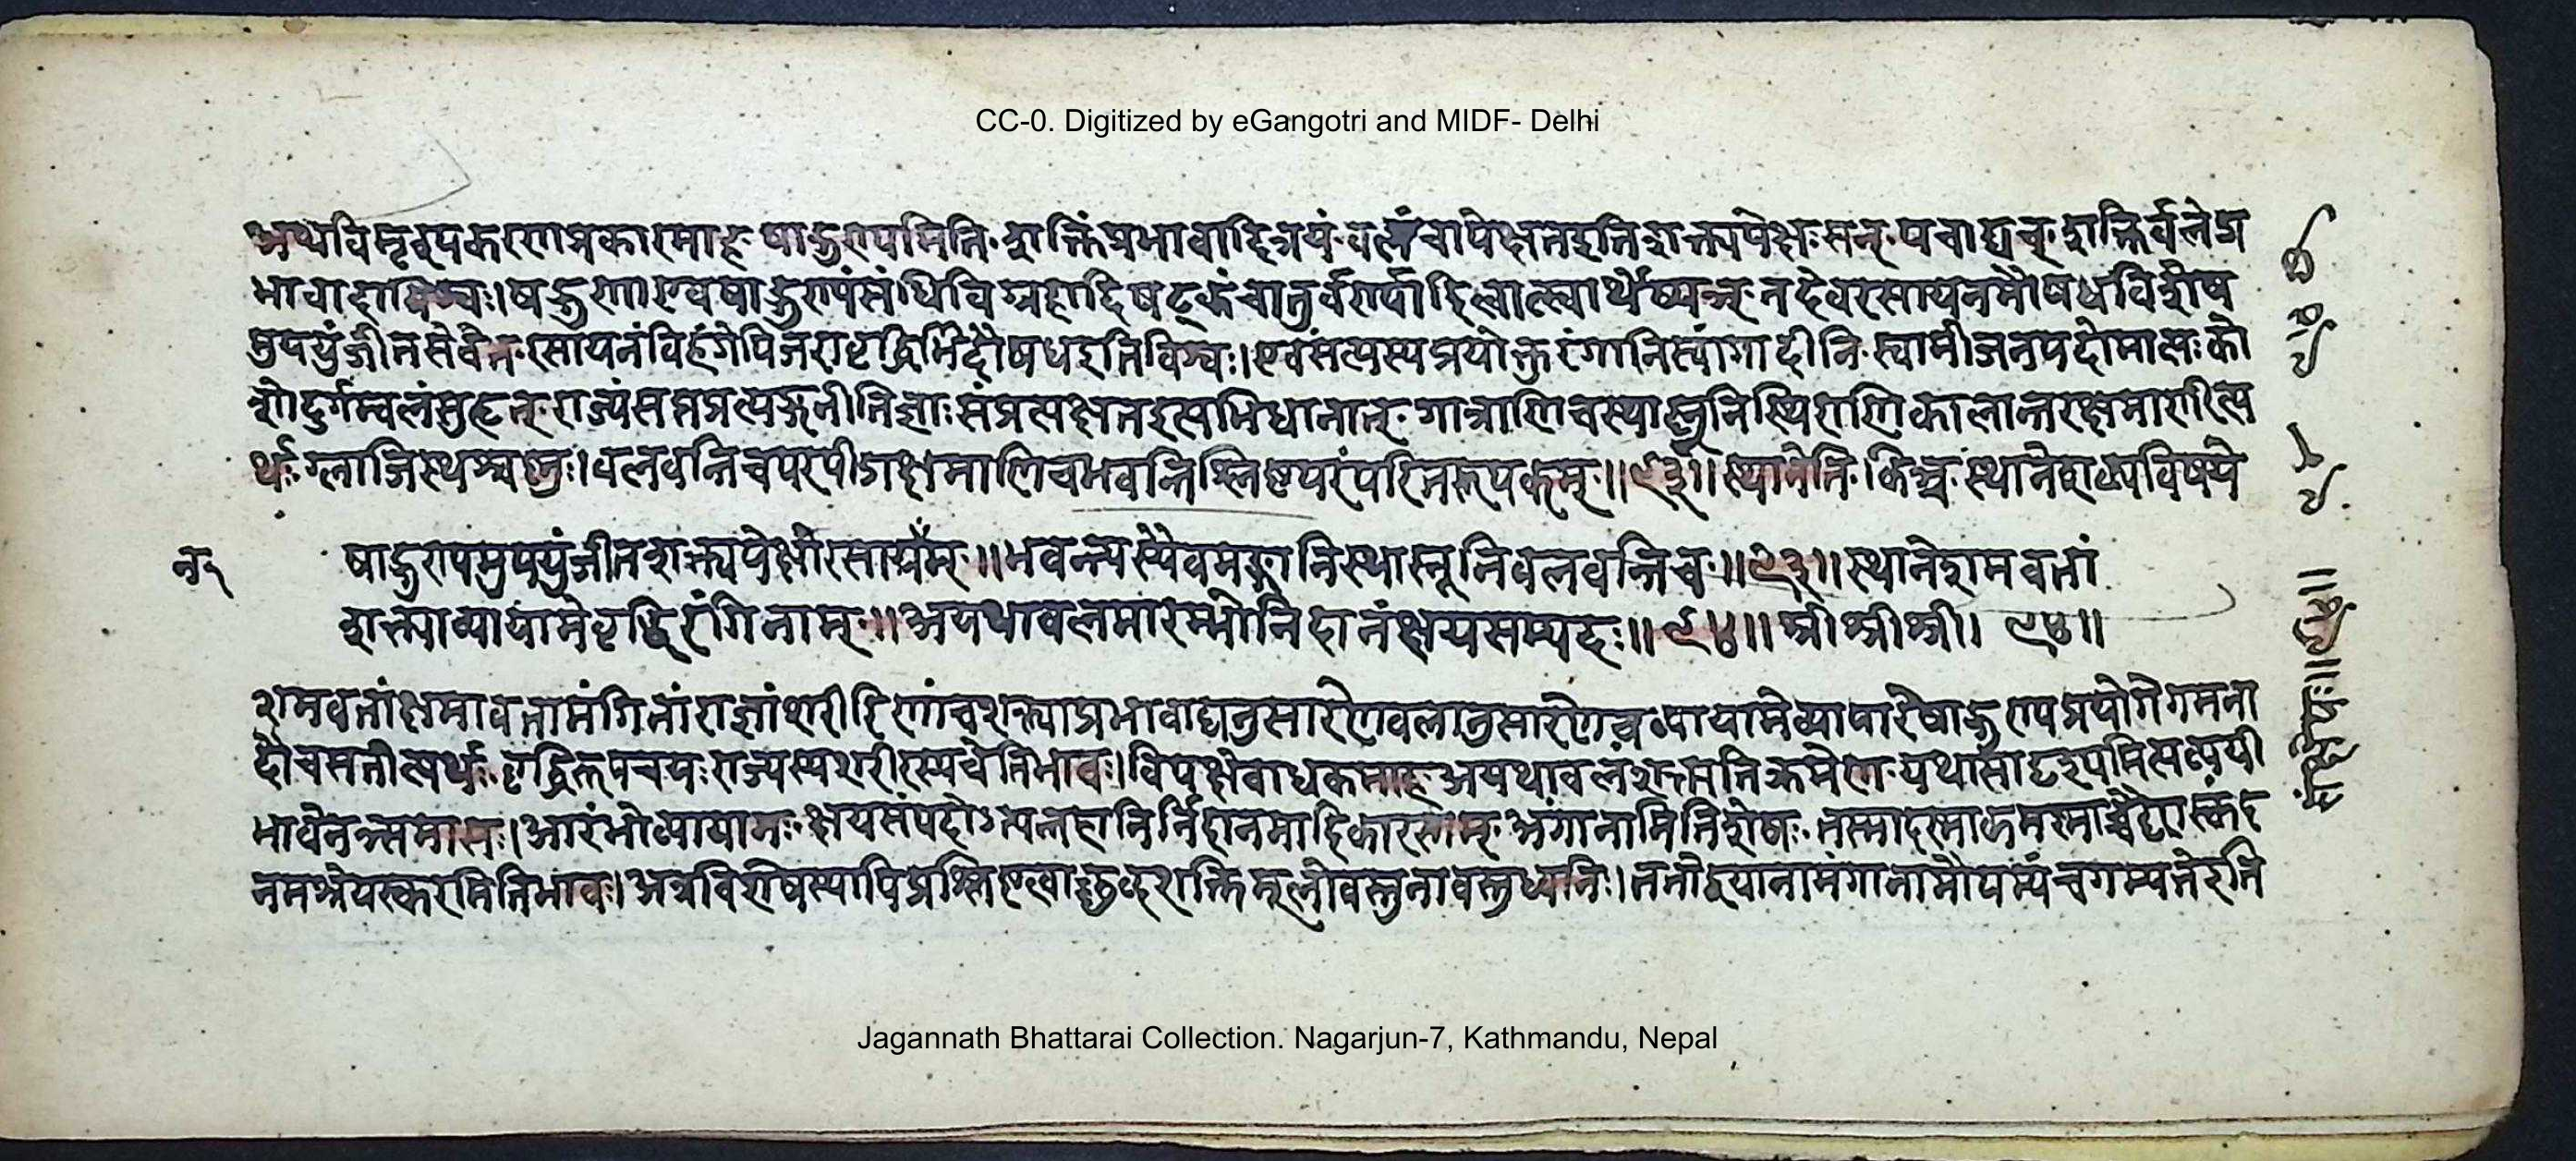 CC-0. Digitized by eGangotri and MIDF- Delhi
अथविमृश्यकरणप्रकारमाह षाड्गुण्यमिति शक्तिंप्रभावादित्रयं बलंचापेक्षतइतिशक्त्यपेक्षः सन् पचाद्यच् शक्तिर्बलेप्र
भावादाविश्वः। षड्गुणाएवषाड्गुण्यंसंधिविग्रहादिषट्कंचातुर्वर्ण्यादित्वात्स्वार्थेष्यञ् तदेवरसायनमौषधविशेष
मुपयुंजीतसेवेत रसायनंविहंगेपिजराव्याधिभिदौषधइतिविश्वः। एवंसत्यस्यप्रयोक्तुरंगानिस्वांगादीनि स्वामीजनपदोमात्यः को
शोदुर्गम्बलंसुहृत् राज्यंसप्तप्रत्यङ्गनीतिज्ञाः संप्रचक्षतइत्यभिधानात् गात्राणिचस्थास्नूनिस्थिराणिकालान्तरक्षमाणीत्य
र्थः ग्लाजिस्थश्चग्स्नुः। बलवन्तिचपरपीडाक्षमाणिचभवन्तिश्लिष्टपरंपरितरूपकम् ॥९३॥ स्थानेति किञ्च स्थानेशक्यविषये
षाड्गुण्यमुपयुंजीतशक्त्यपेक्षीरसायनम् ॥ भवन्त्यस्यैवमङ्गानिस्थास्नूनिबलवन्तिच ॥९३॥ स्थानेशमवतां
शक्त्याव्यायामेवृद्धिरंगिनाम् ॥ अयथाबलमारम्भोनिदानंक्षयसम्पदः ॥९४॥ श्रीश्रीश्री। ९४॥
शमवतांक्षमावतामंगिनांराज्ञांशरीरिणांचशक्त्याप्रभावाद्यनुसारेणबलानुसारेणच व्यायामेव्यापारेषाड्गुण्यप्रयोगेगमना
दौचसतीत्यर्थः वृद्धिरुपचयः राज्यस्यशरीरस्यचेतिभावः। विपक्षेबाधकमाह अयथाबलंशक्त्यतिक्रमेण यथासादृश्यमित्यव्ययी
भावेनञ्समासः। आरंभोव्यायामः क्षयसंपदोऽत्यन्तहानिर्निदानमादिकारणम् अंगानामितिशेषः तस्मादस्माकमकस्माच्चैद्यास्कंद
नमश्रेयस्करमितिभावः। अत्रविशेषस्यापिप्रश्लिष्टत्वाच्छब्दशक्तिमूलोवस्तुनावस्तुध्वनिः। ततोद्वयानामंगानामौपम्यंचगम्यतेइति
Jagannath Bhattarai Collection. Nagarjun-7, Kathmandu, Nepal